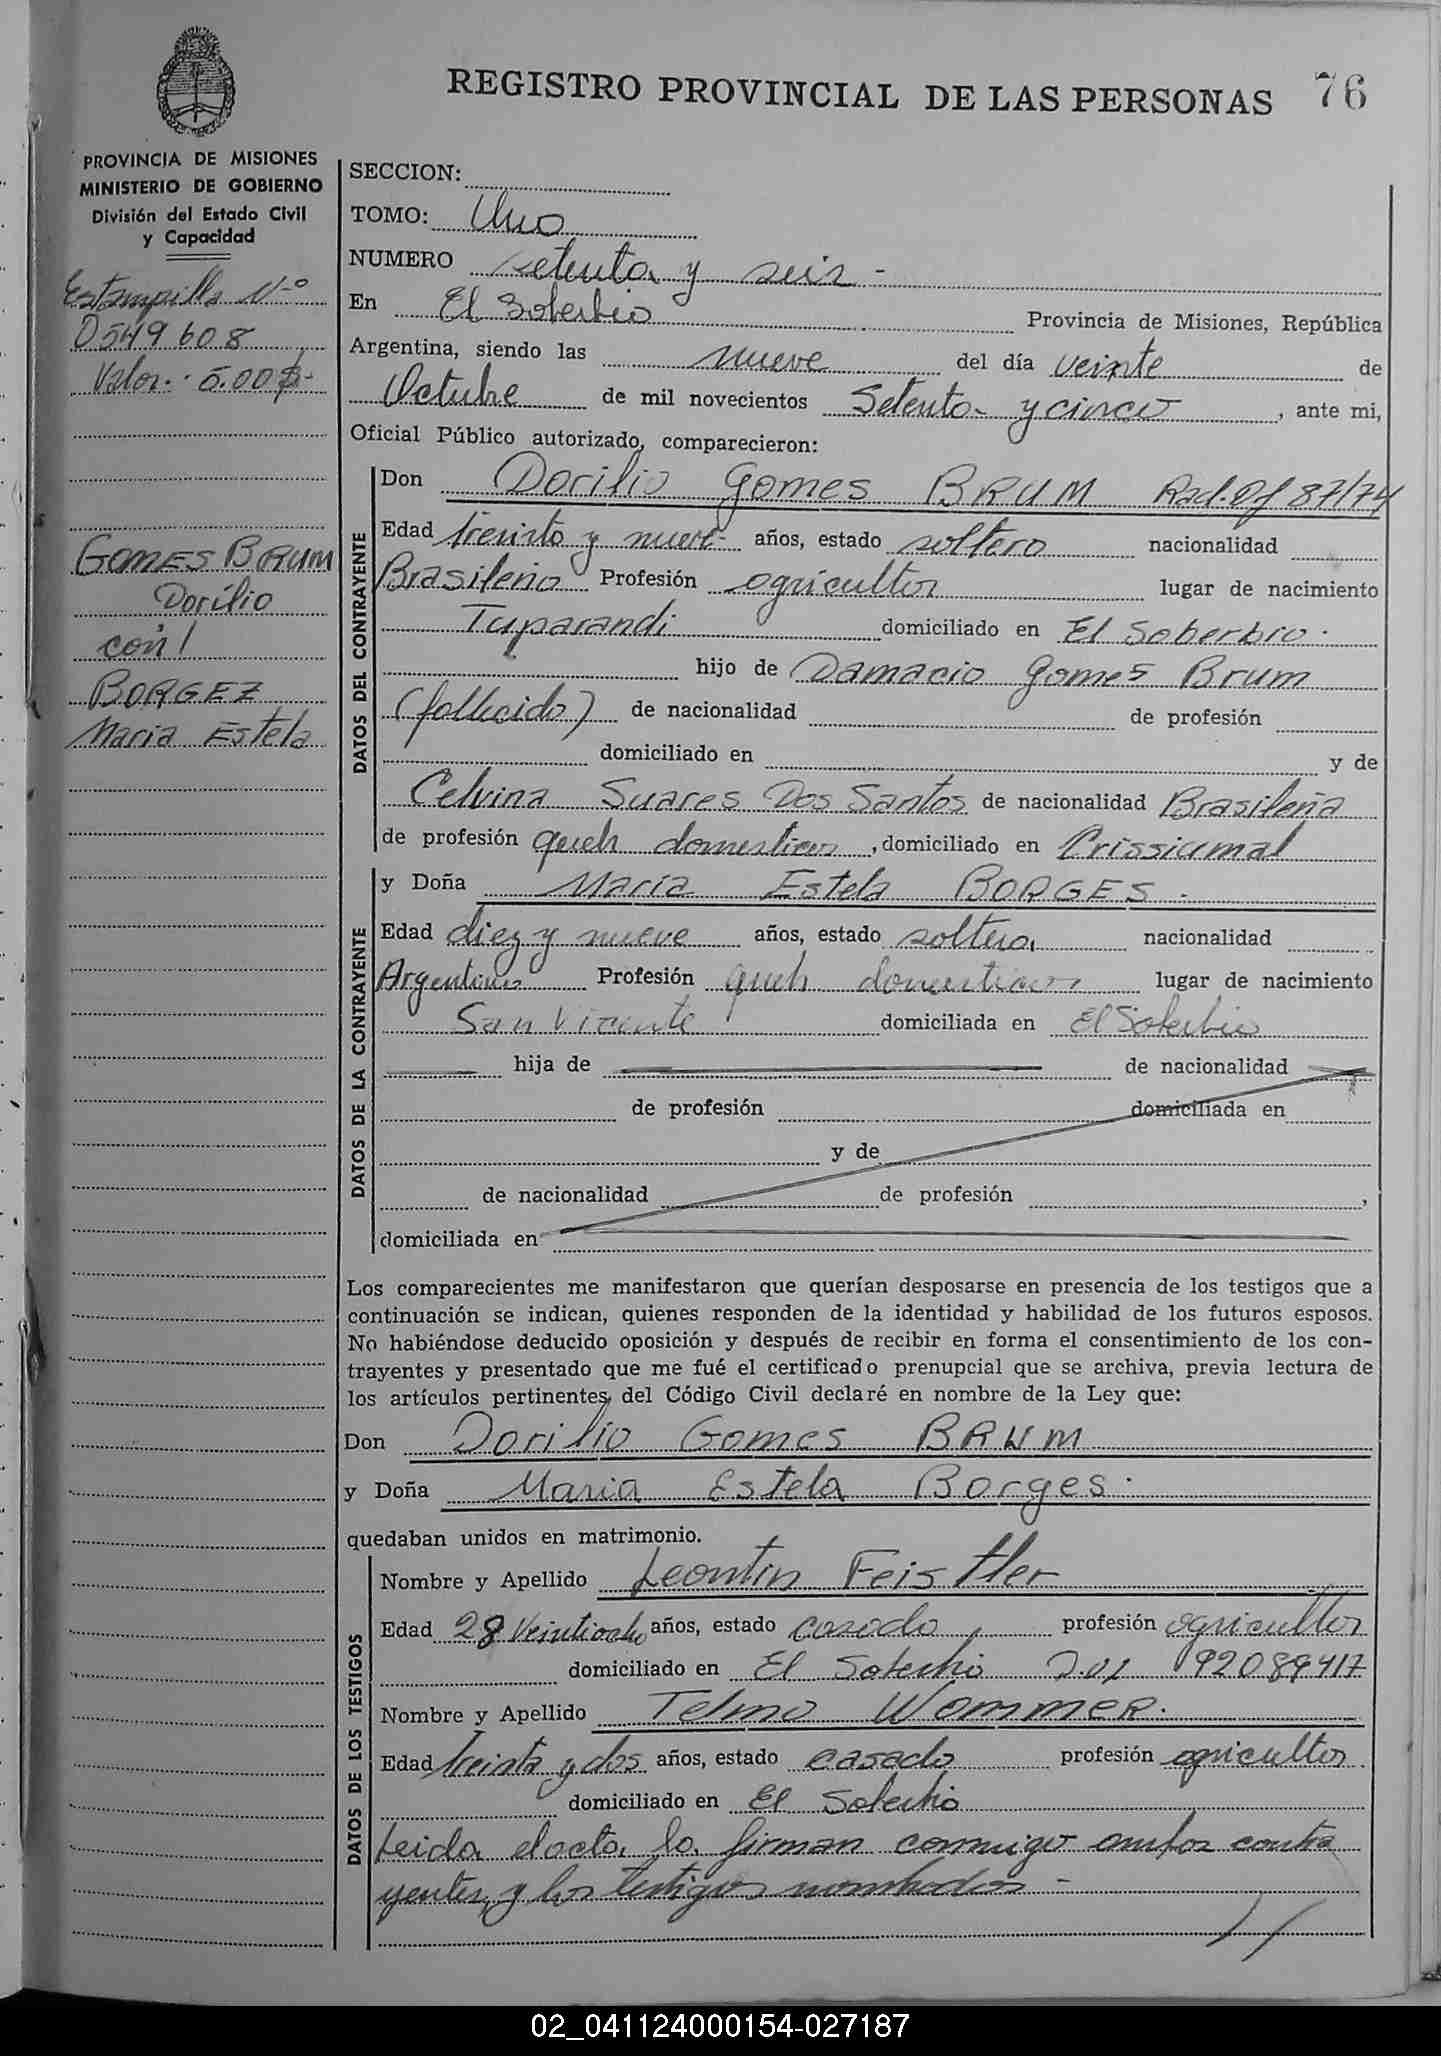 REGISTRO PROVINCIAL DE LAS PERSONAS 76
PROVINCIA DE MISIONES
MINISTERIO DE GOBIERNO
División del Estado Civil
y Capacidad
Estampilla Nº
0549608
Valor.. 5.00 $-
GOMES BRUM
Dorilio
con
BORGEZ
Maria Estela
SECCION:
TOMO: Uno
NUMERO setenta y seis -
En El Soberbio Provincia de Misiones, República
Argentina, siendo las nueve del día veinte de
Octubre de mil novecientos Setenta y cinco, ante mi,
Oficial Público autorizado, comparecieron:
DATOS DEL CONTRAYENTE
Don Dorilio Gomes BRUM Rad. Of 87/74
Edad treinta y nueve- años, estado soltero nacionalidad
Brasileño Profesión agricultor lugar de nacimiento
Tuparandi domiciliado en El Soberbio.
hijo de Damacio Gomes Brum
(fallecido) de nacionalidad de profesión
domiciliado en y de
Celvina Suares Dos Santos de nacionalidad Brasileña
de profesión queh domesticos, domiciliado en Crissiumal
DATOS DE LA CONTRAYENTE
y Doña Maria Estela BORGES.
Edad diez y nueve años, estado soltera nacionalidad
Argentina Profesión queh domesticos lugar de nacimiento
San Vicente domiciliada en El Soberbio
hija de de nacionalidad
de profesión domiciliada en
y de
de nacionalidad de profesión ,
domiciliada en
Los comparecientes me manifestaron que querían desposarse en presencia de los testigos que a
continuación se indican, quienes responden de la identidad y habilidad de los futuros esposos.
No habiéndose deducido oposición y después de recibir en forma el consentimiento de los con-
trayentes y presentado que me fué el certificado prenupcial que se archiva, previa lectura de
los artículos pertinentes, del Código Civil declaré en nombre de la Ley que:
Don Dorilio Gomes BRUM
y Doña Maria Estela Borges.
quedaban unidos en matrimonio.
DATOS DE LOS TESTIGOS
Nombre y Apellido Leontin Feistler
Edad 28 Veintiocho años, estado casado profesión agricultor
domiciliado en El Soberbio 92089417
Nombre y Apellido Telmo WommeR.
Edad treinta y dos años, estado casado profesión agricultor
domiciliado en El Soberbio
Leida el acta, la firman conmigo ambos contra
yentes, y los testigos nombrados -
02_041124000154-027187